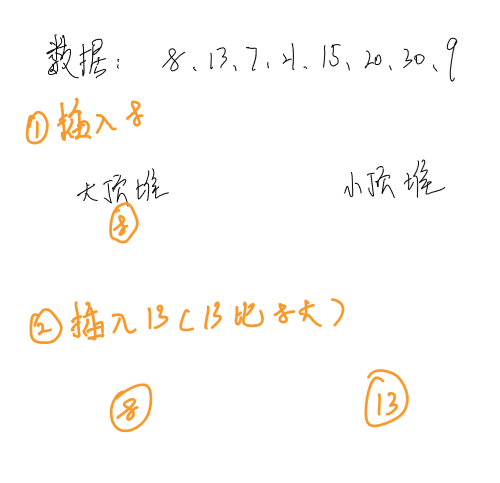 数据: 8、13、7、21、15、20、30、9
①插入8
大顶堆 小顶堆
8
②插入13(13比8大)
8 13